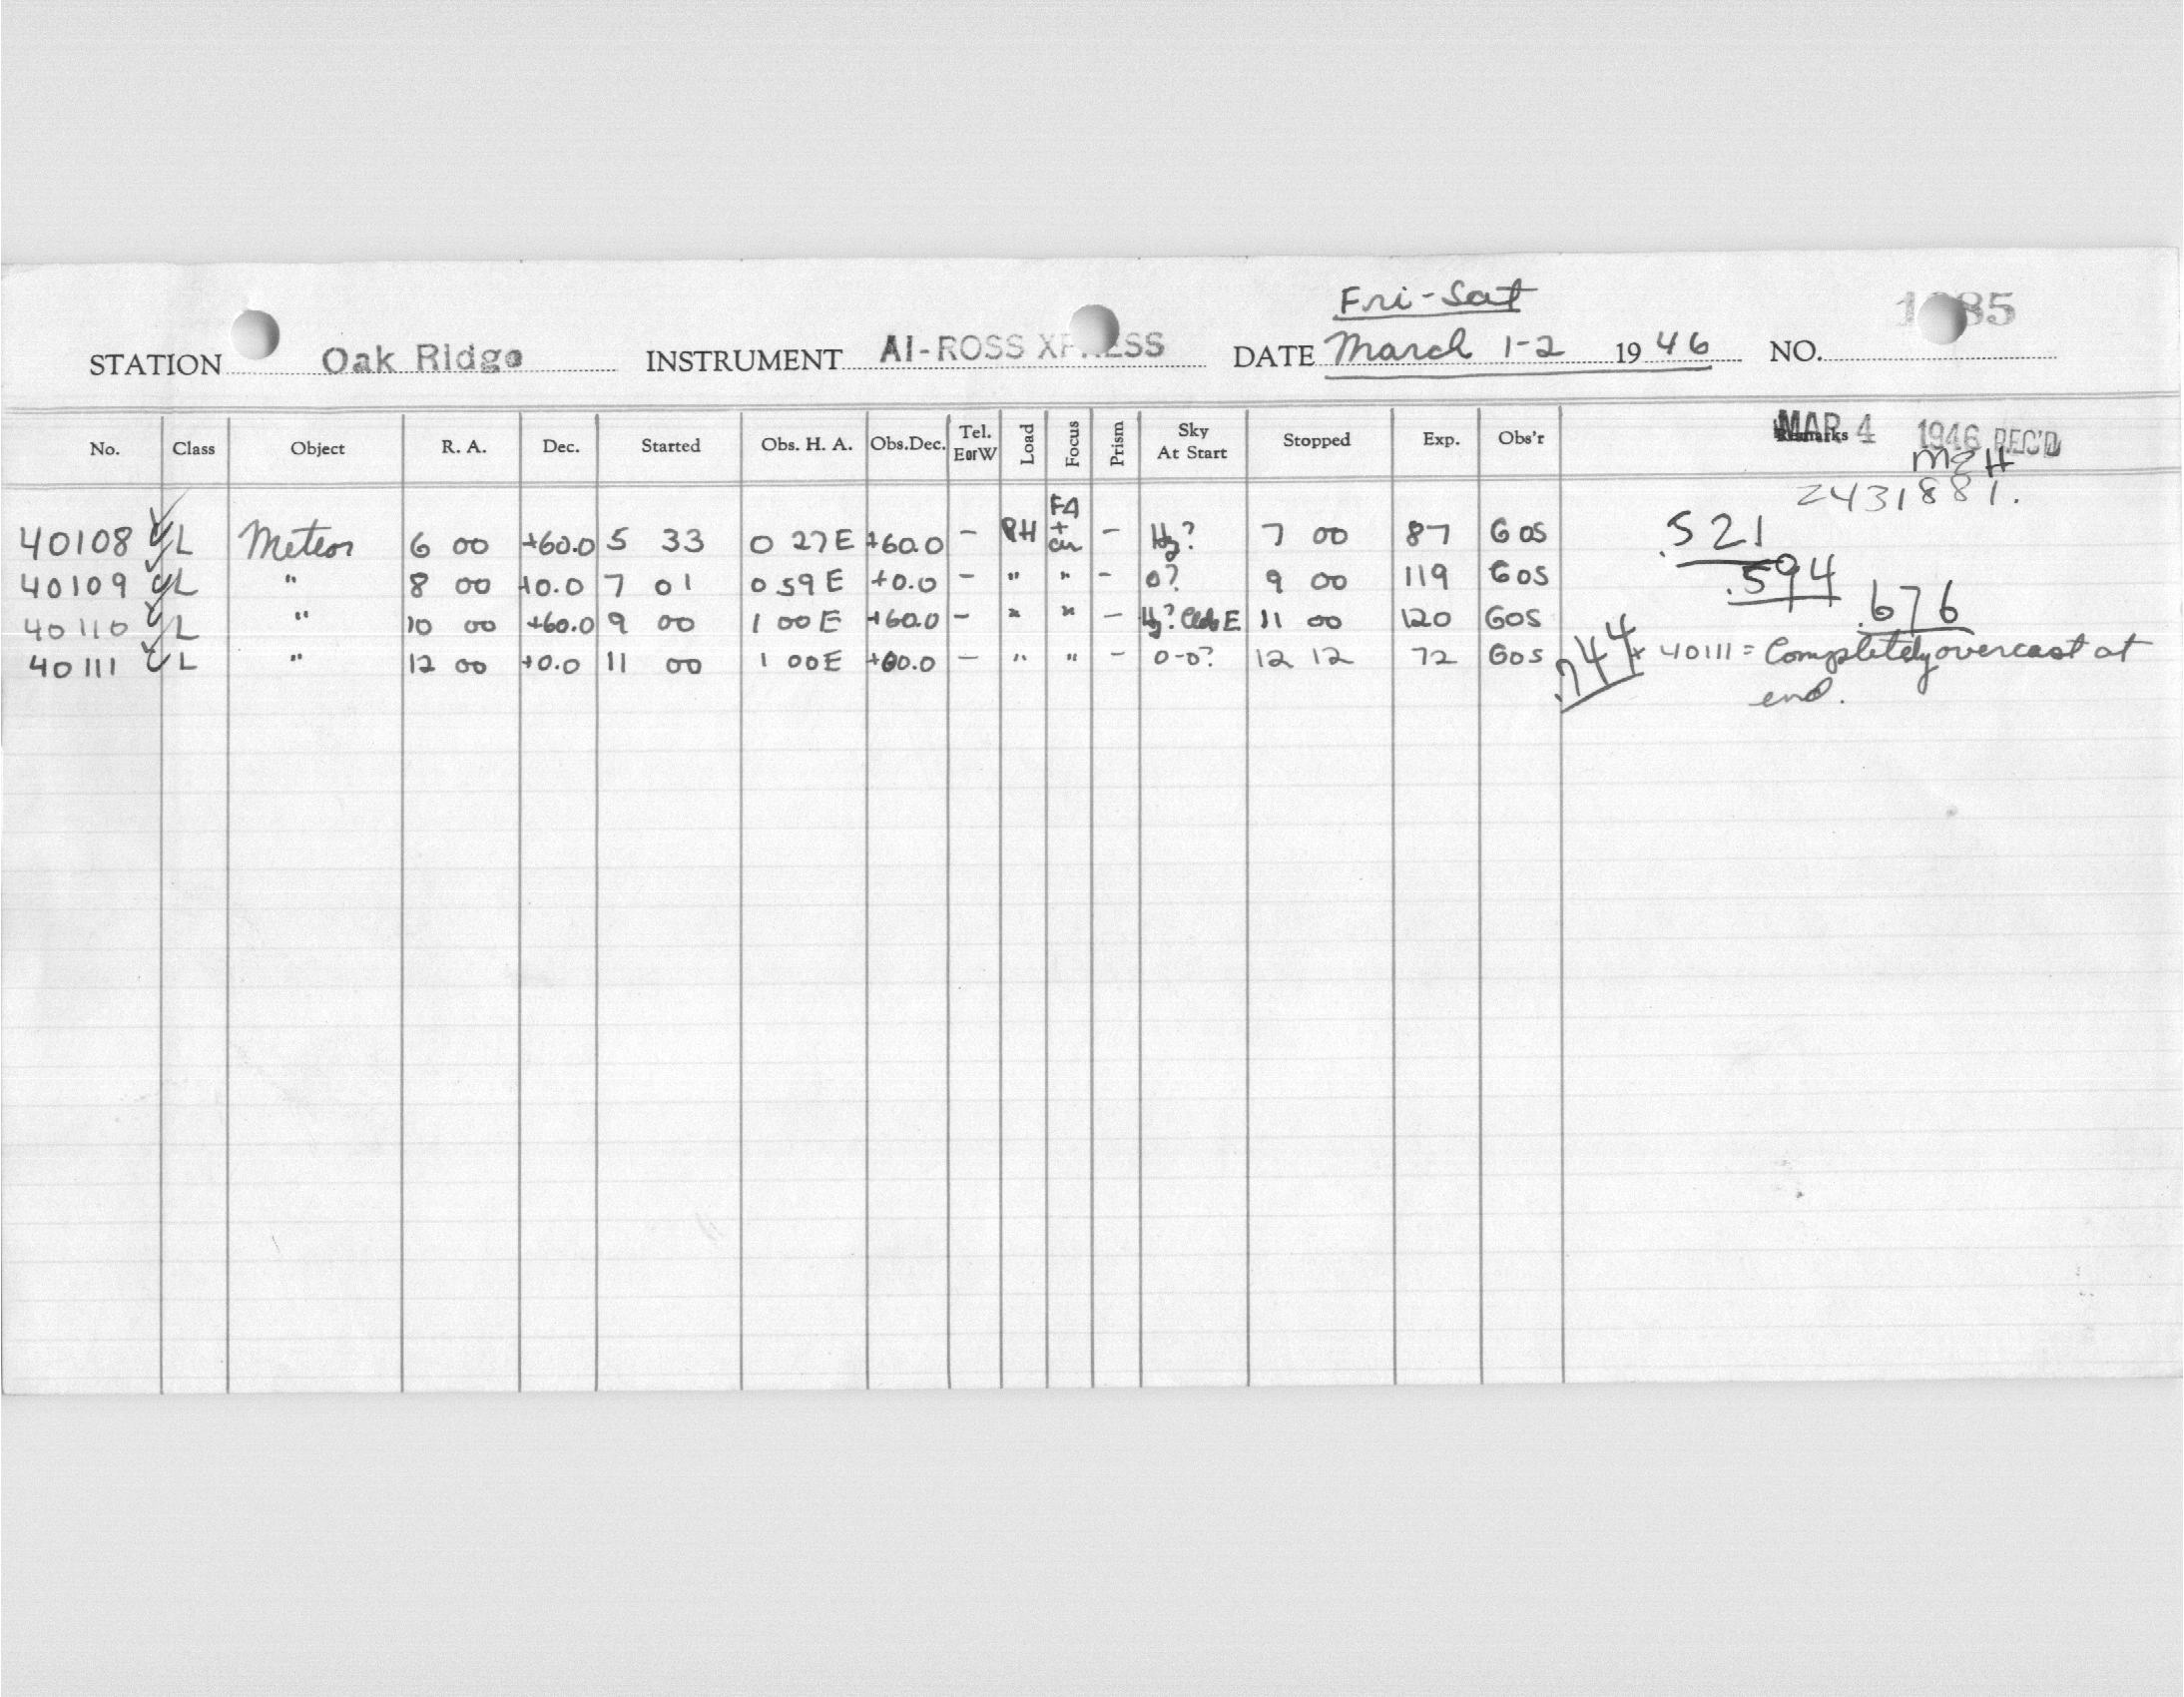 Fri-Sat
STATION Oak Ridge INSTRUMENT AI-ROSS DATE March 1-2 1946 NO.
No. Class Object R. A. Dec. Started Obs. H. A. Obs.Dec. Tel. EorW Load Focus Prism Sky At Start Stopped Exp. Obs'r Remarks MAR 4 1946 REC'D
MZH
2431881.
40108 L Meteor 6 00 +60.0 5 33 0 27 E +60.0 - PH FA + - Hz? 7 00 87 GOS .521
40109 L " 8 00 +0.0 7 01 0 59 E +0.0 - " " - 0? 9 00 119 GOS .594
40110 L " 10 00 +60.0 9 00 1 00 E +60.0 - " " - Hz? E 11 00 120 GOS .676
40111 L " 12 00 +0.0 11 00 1 00 E - " " - 0-0? 12 12 72 GOS .744 * 40111 = Completely overcast at
end.